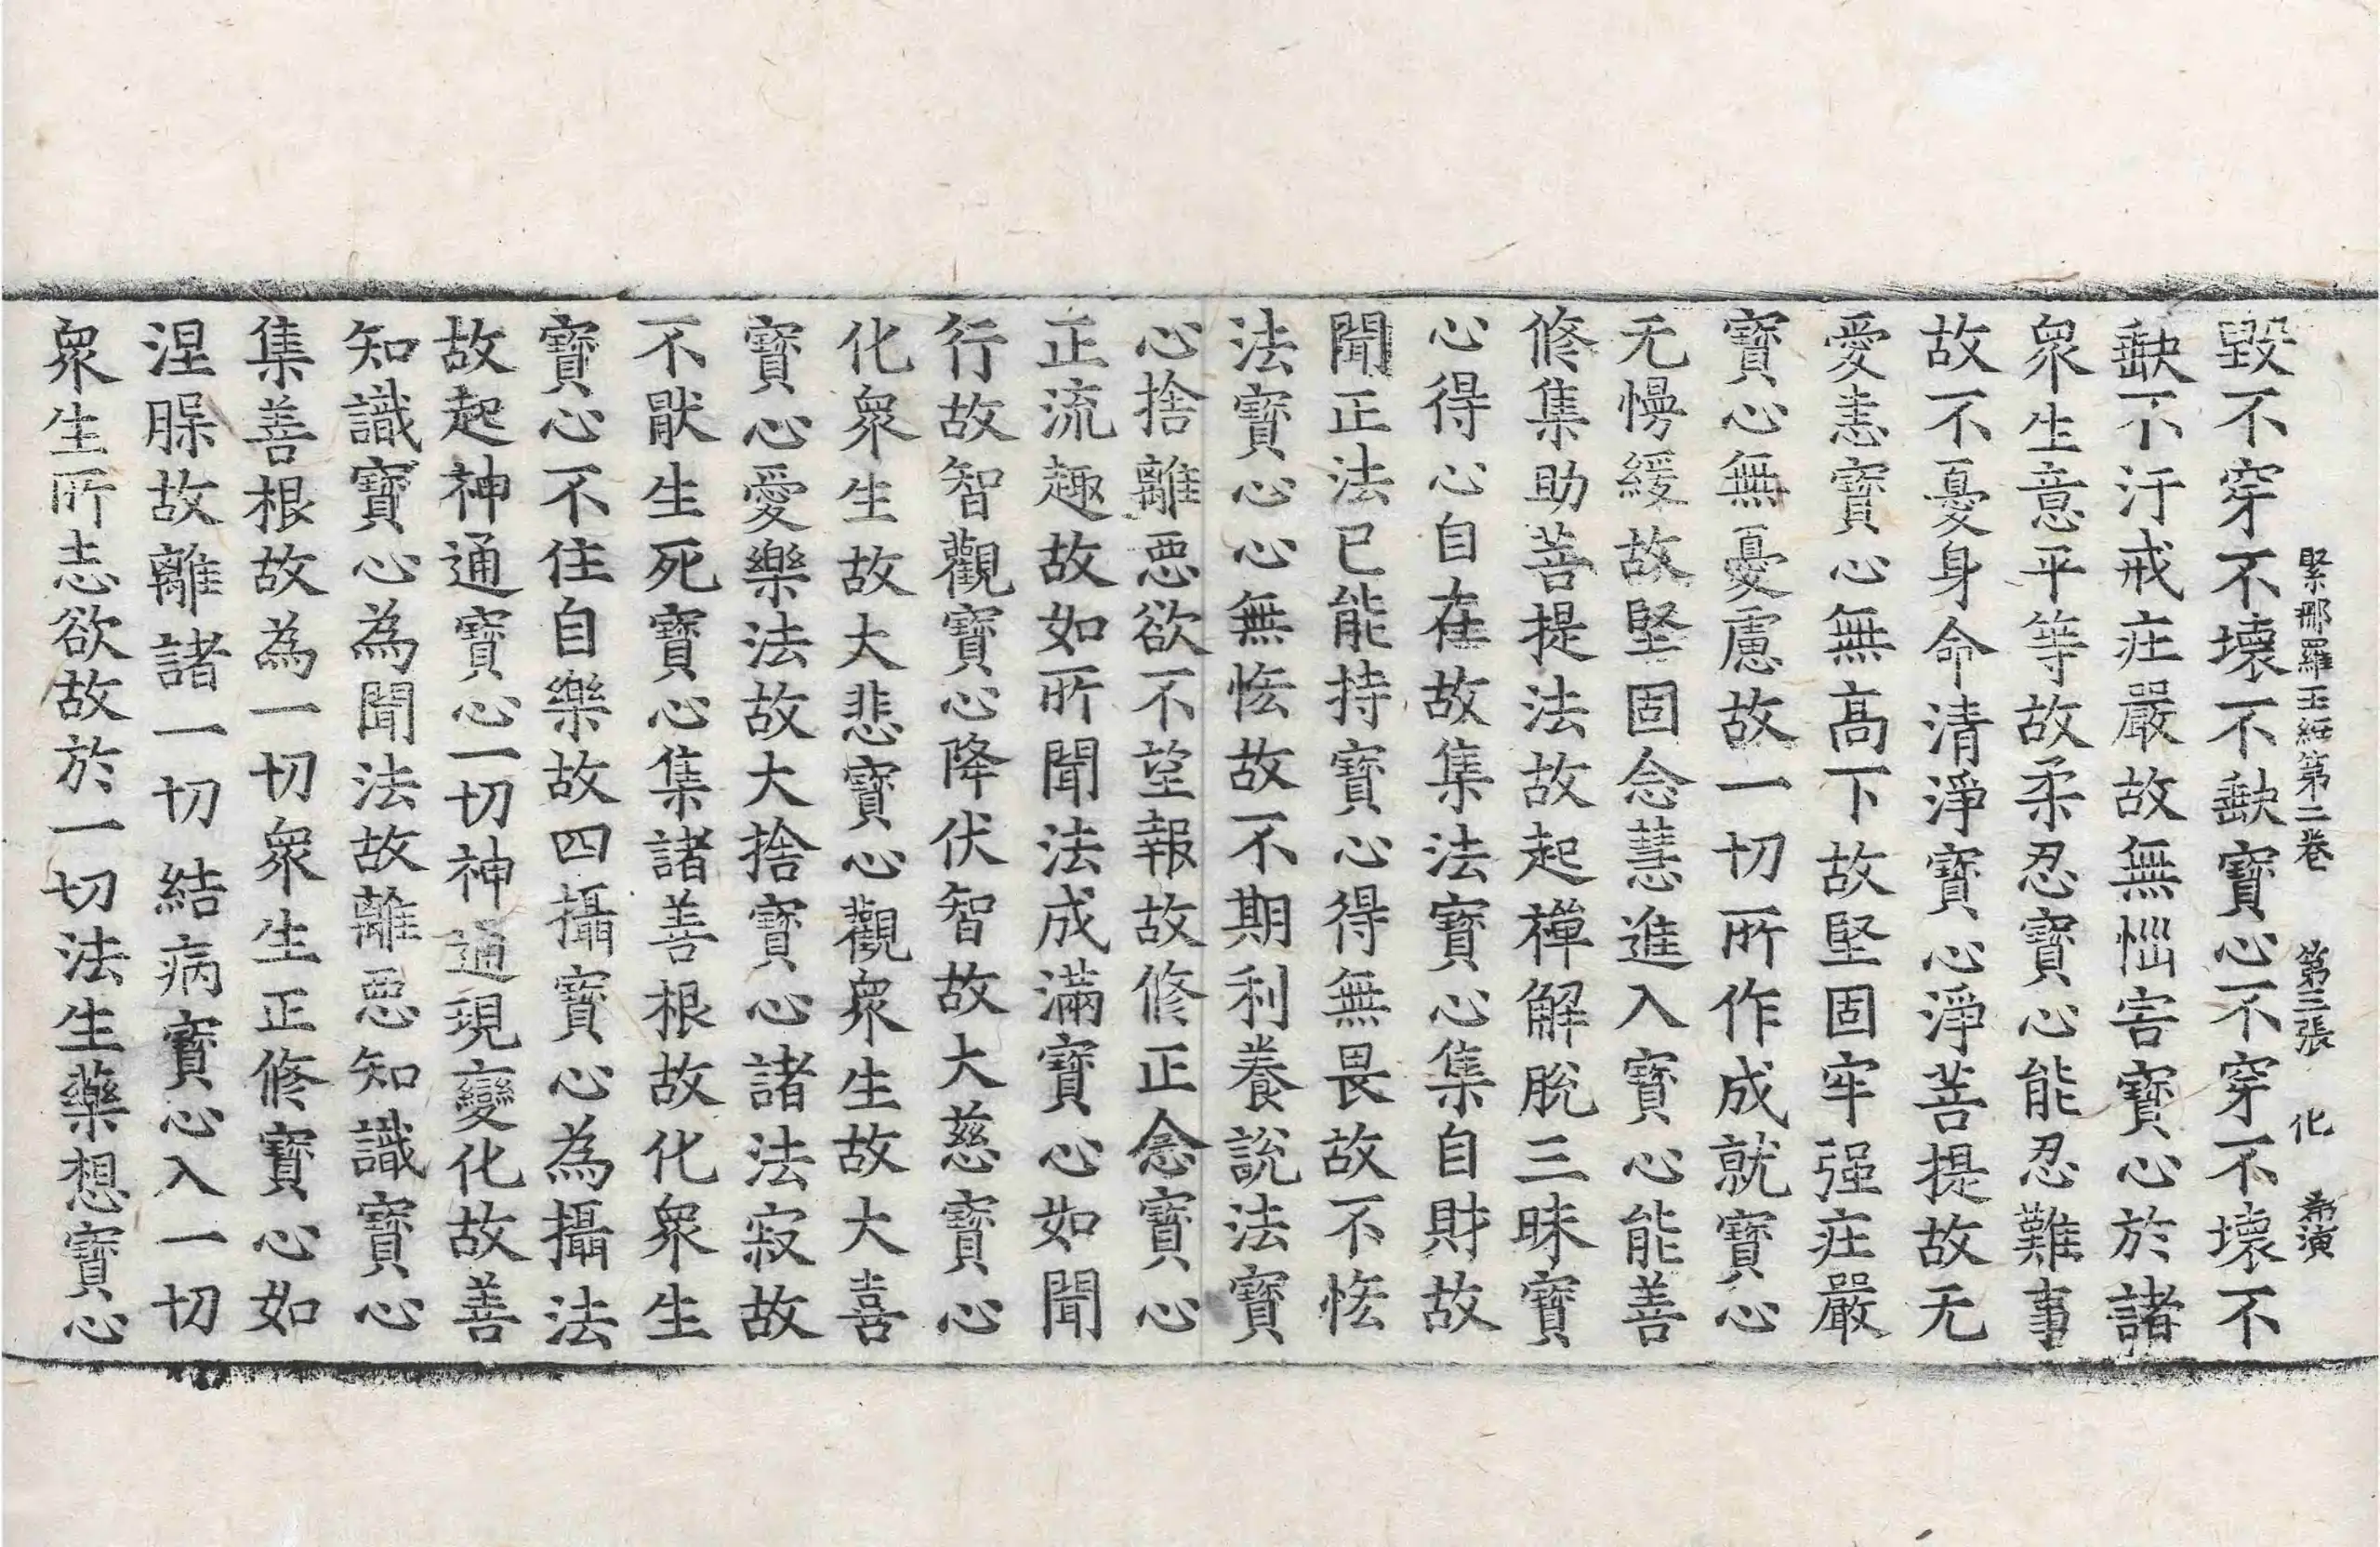 緊那羅王經第二卷 第三張 化 希演
毀不穿不壞不缺寶心不穿不壞不
缺不汙戒庄嚴故無惱害寶心於諸
衆生意平等故柔忍寶心能忍難事
故不憂身命清淨寶心淨菩提故无
愛恚寶心無高下故堅固牢强庄嚴
寶心無憂慮故一切所作成就寶心
无慢緩故堅固念慧進入寶心能善
修集助菩提法故起禪解脫三昧寶
心得心自在故集法寶心集自財故
聞正法已能持寶心得無畏故不恡
法寶心心無恡故不期利養說法寶
心捨離惡欲不望報故修正念寶心
正流趣故如所聞法成滿寶心如聞
行故智觀寶心降伏智故大慈寶心
化衆生故大悲寶心觀衆生故大喜
寶心愛樂法故大捨寶心諸法寂故
不猒生死寶心集諸善根故化衆生
寶心不住自樂故四攝寶心為攝法
故起神通寶心一切神通現變化故善
知識寶心為聞法故離惡知識寶心
集善根故為一切衆生正修寶心如
涅槃故離諸一切結病寶心入一切
衆生所志欲故於一切法生藥想寶心